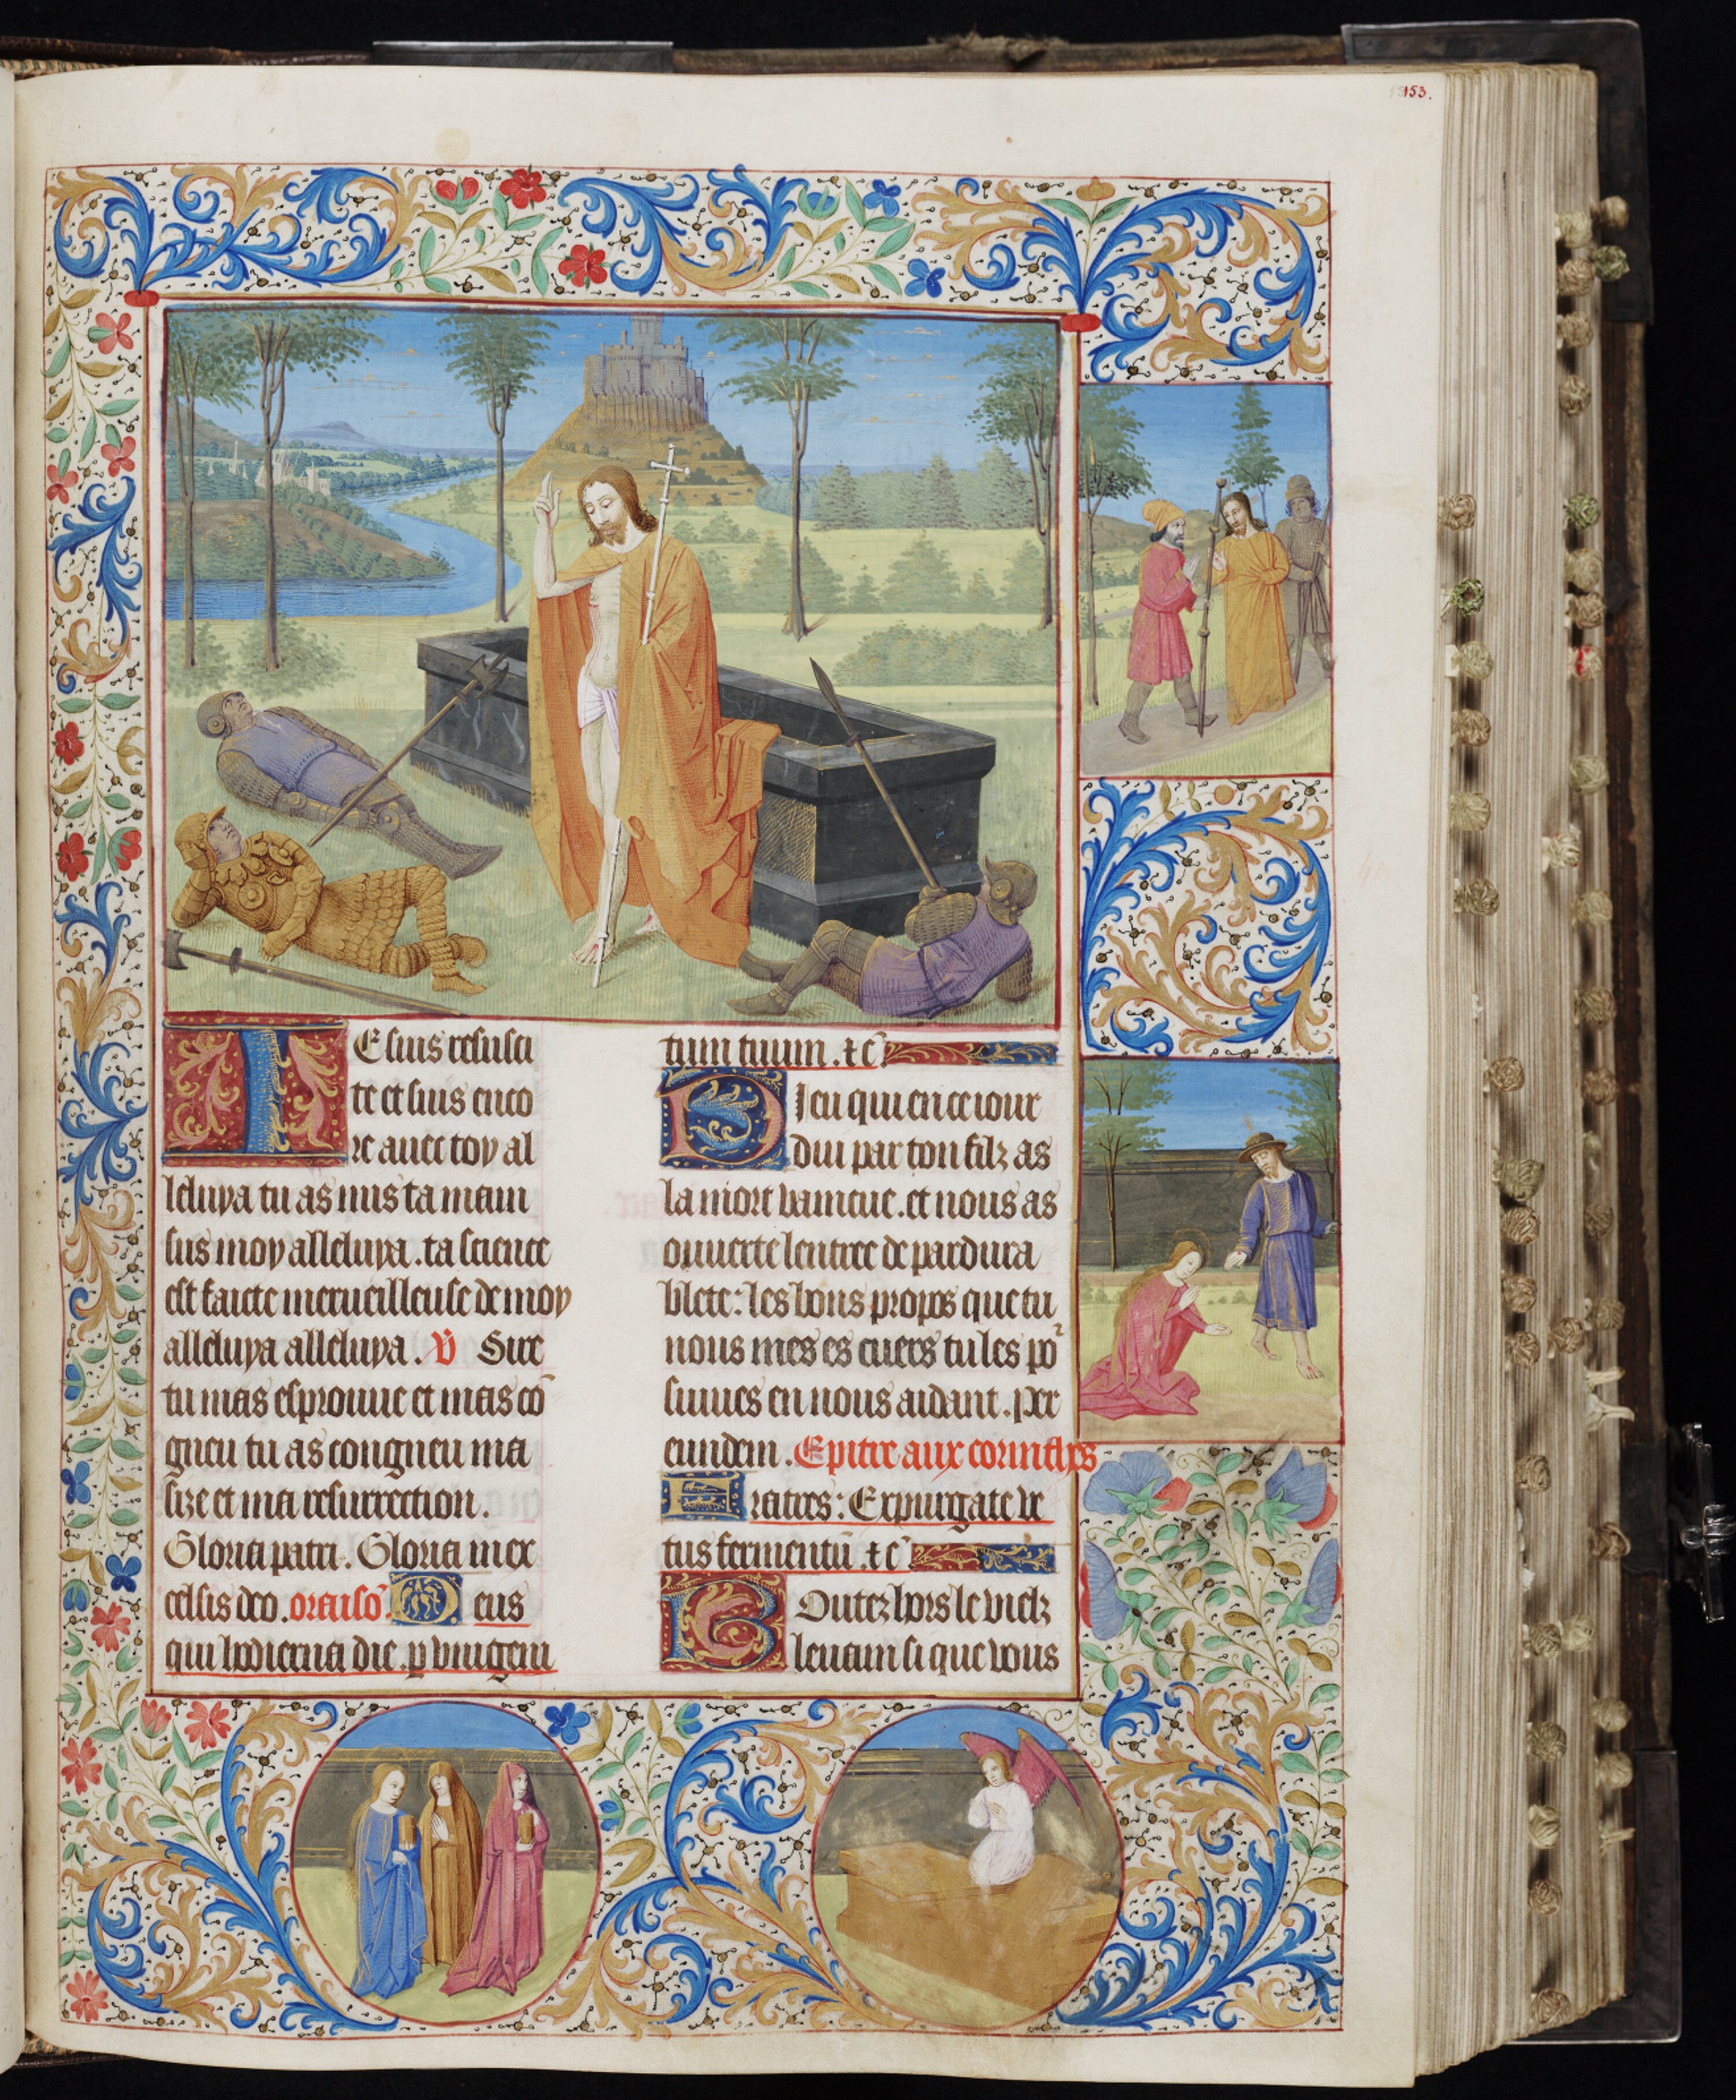 153.
IE suis resusci
te et suis enco
re avec toy al
leluya tu as mis ta main
sus moy alleluya. ta science
est faicte merveilleuse de moy
alleluya alleluya. V Sire
tu mas esprouve et mas cō
gneu tu as congneu ma
size et ma resurrection.
Gloria patri. Gloria in ex
celsis deo. oraisō. Deus
qui hodierna die. p unigeni
tum tuum. ⁊c̄
DIeu qui en ce iour
dui par ton filz as
la mort vaincue. et nous as
ouverte lentree de pardura
blete: les bons propos que tu
nous mes es cuers tu les po
suives en nous aidant. Per
eundem. Epitre aux corinthes
Fratres: Expurgate ve
tus fermentū. ⁊c̄
BOutez hors le vielz
levain si que vous